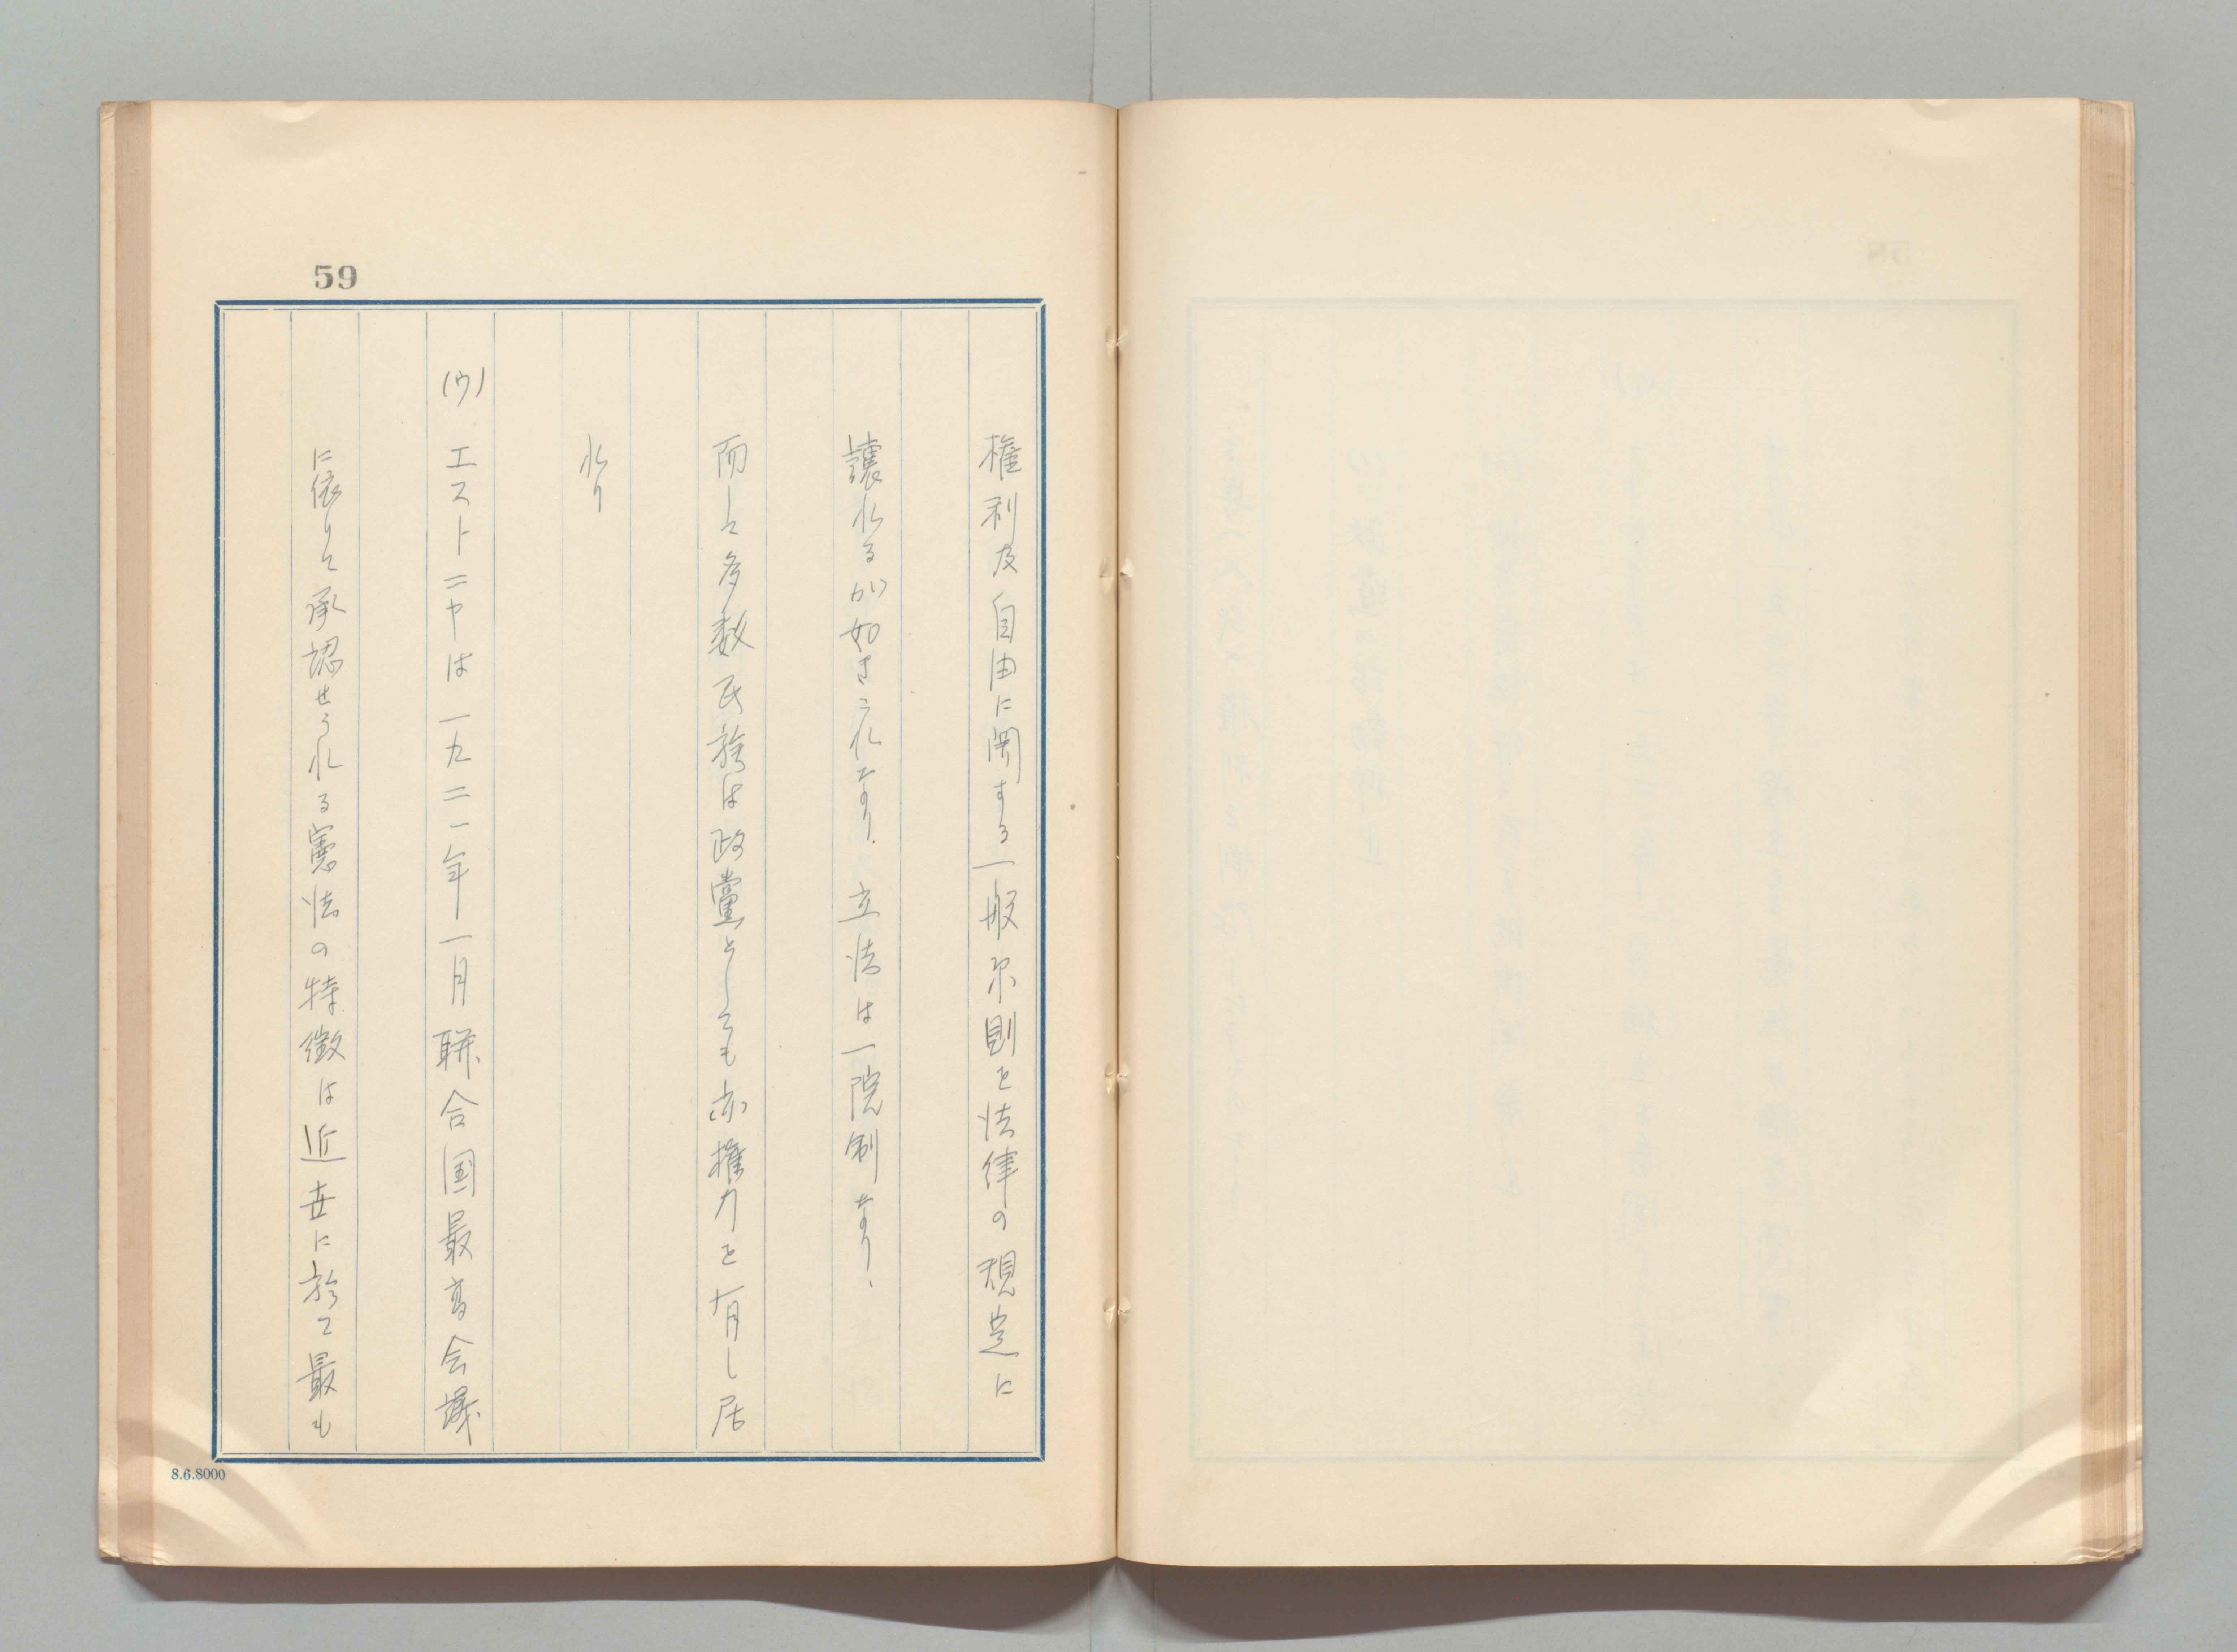 59
権利及自由に関する一般原則を法律の規定に
譲れるが如きこれなり、立法は一院制なり、
而して多数民族は政党としても亦権力を有し居
れり
(ウ) エストニヤは一九二一年一月聯合国最高会議
に依りて承認せられる憲法の特徴は近世に於て最も
8.6.8000